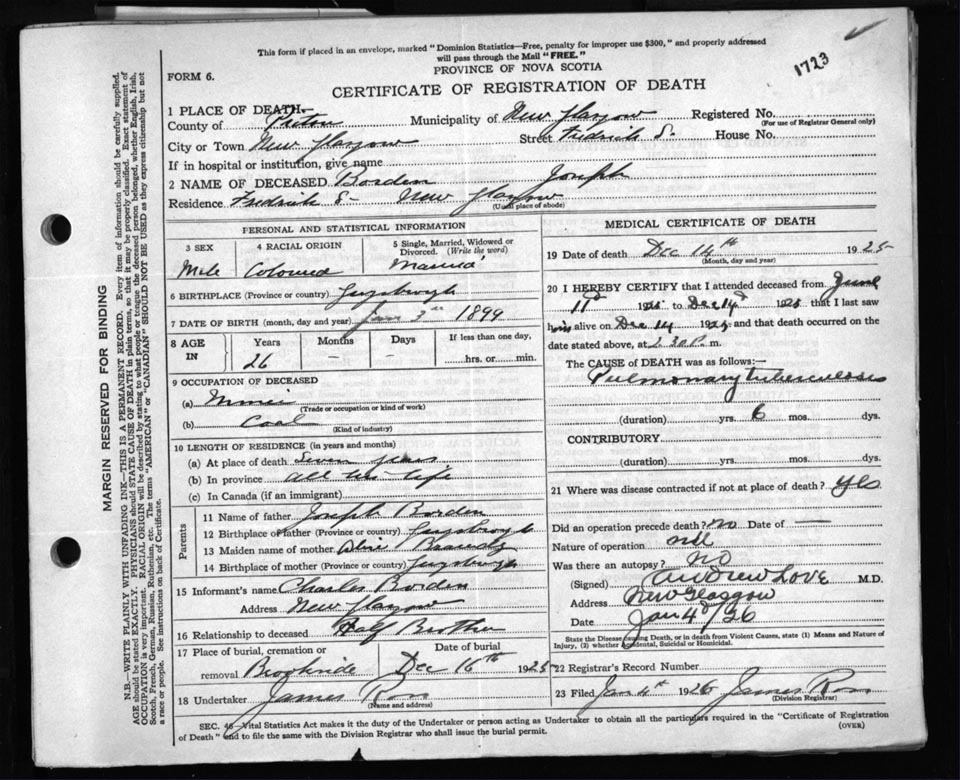 This form if placed in an envelope, marked "Dominion Statistics—Free, penalty for improper use $300," and properly addressed
will pass through the Mail "FREE."
1723
FORM 6.
PROVINCE OF NOVA SCOTIA
CERTIFICATE OF REGISTRATION OF DEATH
1 PLACE OF DEATH—
County of Pictou Municipality of New Glasgow Registered No.
(For use of Registrar General only)
City or Town New Glasgow Street Fredrick S. House No.
If in hospital or institution, give name
2 NAME OF DECEASED Borden Joseph
Residence Fredrick S— New Glasgow
(Usual place of abode)
PERSONAL AND STATISTICAL INFORMATION
3 SEX 4 RACIAL ORIGIN 5 Single, Married, Widowed or
Divorced. (Write the word)
Male Coloured Married
6 BIRTHPLACE (Province or country) Guysborough
7 DATE OF BIRTH (month, day and year) Jan 1899
8 AGE IN Years Months Days If less than one day,
26 — — hrs. or min.
9 OCCUPATION OF DECEASED
(a) Miner
(Trade or occupation or kind of work)
(b) Coal
(Kind of industry)
10 LENGTH OF RESIDENCE (in years and months)
(a) At place of death Seven years
(b) In province all his life
(c) In Canada (if an immigrant)
Parents
11 Name of father Joseph Borden
12 Birthplace of father (Province or country) Guysborough
13 Maiden name of mother
14 Birthplace of mother (Province or country) Guysborough
15 Informant's name Charles Borden
Address New Glasgow
16 Relationship to deceased Half Brother
17 Place of burial, cremation or Date of burial
removal Brookside Dec 16th 1925
18 Undertaker James Ross
(Name and address)
MEDICAL CERTIFICATE OF DEATH
19 Date of death Dec 14th 1925
(Month, day and year)
20 I HEREBY CERTIFY that I attended deceased from June
1925 to Dec 14 1925 that I last saw
him alive on Dec 14 1925 and that death occurred on the
date stated above, at 2.30 P. m.
The CAUSE OF DEATH was as follows:—
Pulmonary tuberculosis
(duration) yrs. 6 mos. dys.
CONTRIBUTORY
(duration) yrs. mos. dys.
21 Where was disease contracted if not at place of death? Yes
Did an operation precede death? no Date of —
Nature of operation nil
Was there an autopsy? no
(Signed) Andrew Love M.D.
Address New Glasgow
Date Jan 4 /26
State the Disease causing Death, or in death from Violent Causes, state (1) Means and Nature of
Injury, (2) whether Accidental, Suicidal or Homicidal.
22 Registrar's Record Number
23 Filed Jan 4th 1926 James Ross
(Division Registrar)
SEC. 46 Vital Statistics Act makes it the duty of the Undertaker or person acting as Undertaker to obtain all the particulars required in the "Certificate of Registration
of Death" and to file the same with the Division Registrar who shall issue the burial permit.
(OVER)
MARGIN RESERVED FOR BINDING
N.B.—WRITE PLAINLY WITH UNFADING INK—THIS IS A PERMANENT RECORD. Every item of information should be carefully supplied.
AGE should be stated EXACTLY. PHYSICIANS should STATE CAUSE OF DEATH in plain terms, so that it may be properly classified. Exact statement of
OCCUPATION is very important. RACIAL ORIGIN will be described by stating to what people or tongue the deceased person belonged, whether English, Irish,
Scotch, French, German, Russian, Ruthenian, etc. The terms "AMERICAN" or "CANADIAN" SHOULD NOT BE USED as they express citizenship but not
a race or people. See instructions on back of Certificate.